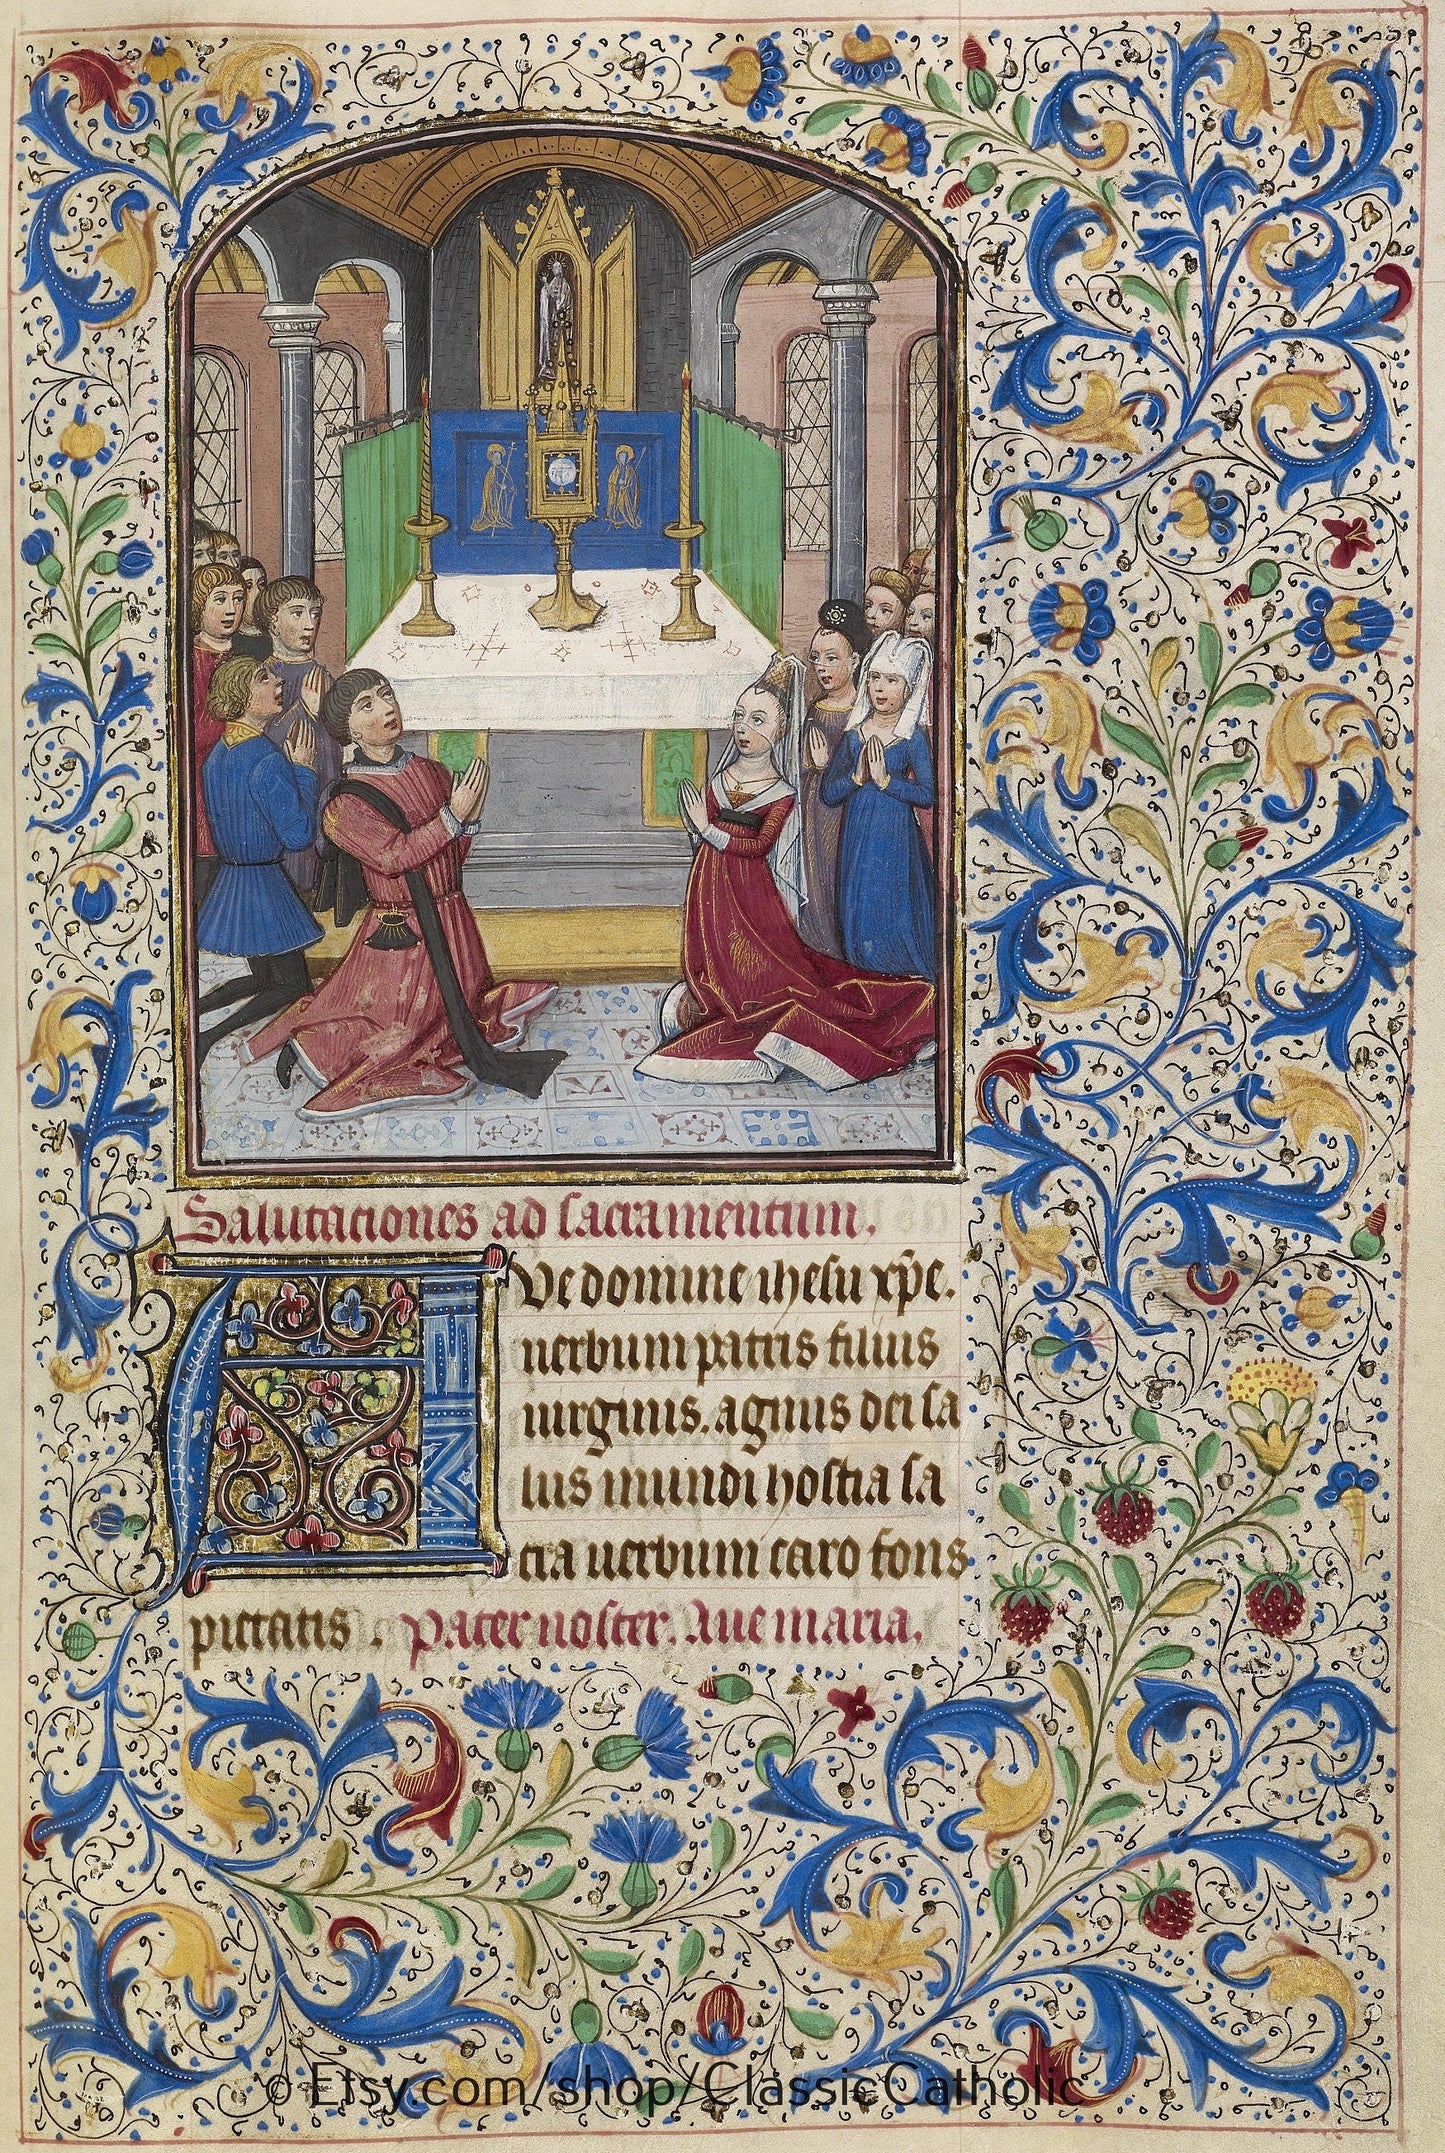 Salutaciones ad sacramentum.
Ave domine ihesu xp̄e.
uerbum patris filius
uirginis. agnus dei sa
lus mundi hostia sa
cra uerbum caro fons
pietatis. Pater noster. Aue maria.
© Etsy.com/shop/ClassicCatholic